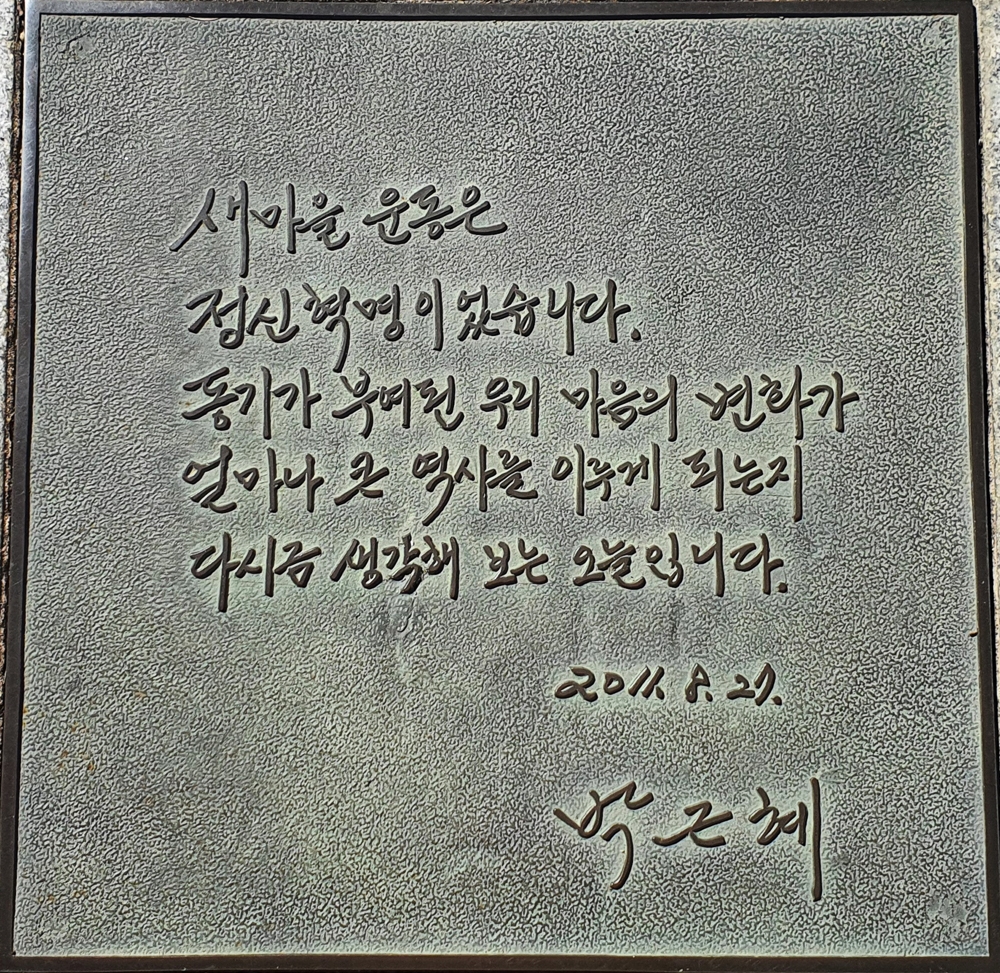 새마을 운동은
정신혁명이었습니다.
동기가 부여된 우리 마음의 변화가
얼마나 큰 역사를 이루게 되는지
다시금 생각해 보는 오늘입니다.
2011. 8. 27.
박근혜